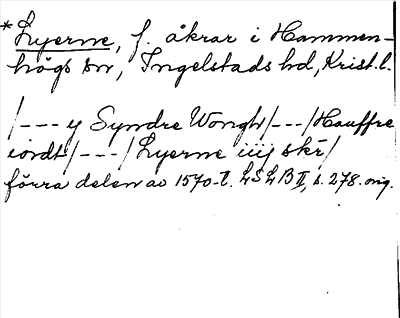 *Lyerne, f. åkrar i Hammen-
högs sn, Ingelstads hd, Krist. l.
/--- y Syndre Wongh/---/Hauffre
iordt/---/Lyerne iiij skr/
förra delen av 1570-t. LSLB II, s. 278. orig.